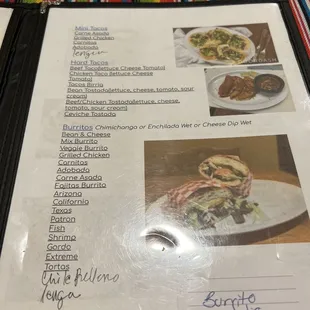 Mini Tacos
Carne Asada
Grilled Chicken
Carnitas
Adobada
lengua
Hard Tacos
Beef Taco(lettuce Cheese Tomato)
Chicken Taco (lettuce Cheese
Tomato)
Tacos Birria
Bean Tostada(lettuce, cheese, tomato, sour
cream)
Beef/Chicken Tostada(lettuce, cheese,
tomato, sour cream)
Ceviche Tostada
Burritos Chimichanga or Enchilada Wet or Cheese Dip Wet
Bean & Cheese
Mix Burrito
Veggie Burrito
Grilled Chicken
Carnitas
Adobada
Carne Asada
Fajitas Burrito
Arizona
California
Texas
Patron
Fish
Shrimp
Gordo
Extreme
Tortas
Chile Relleno
lengua
Burrito